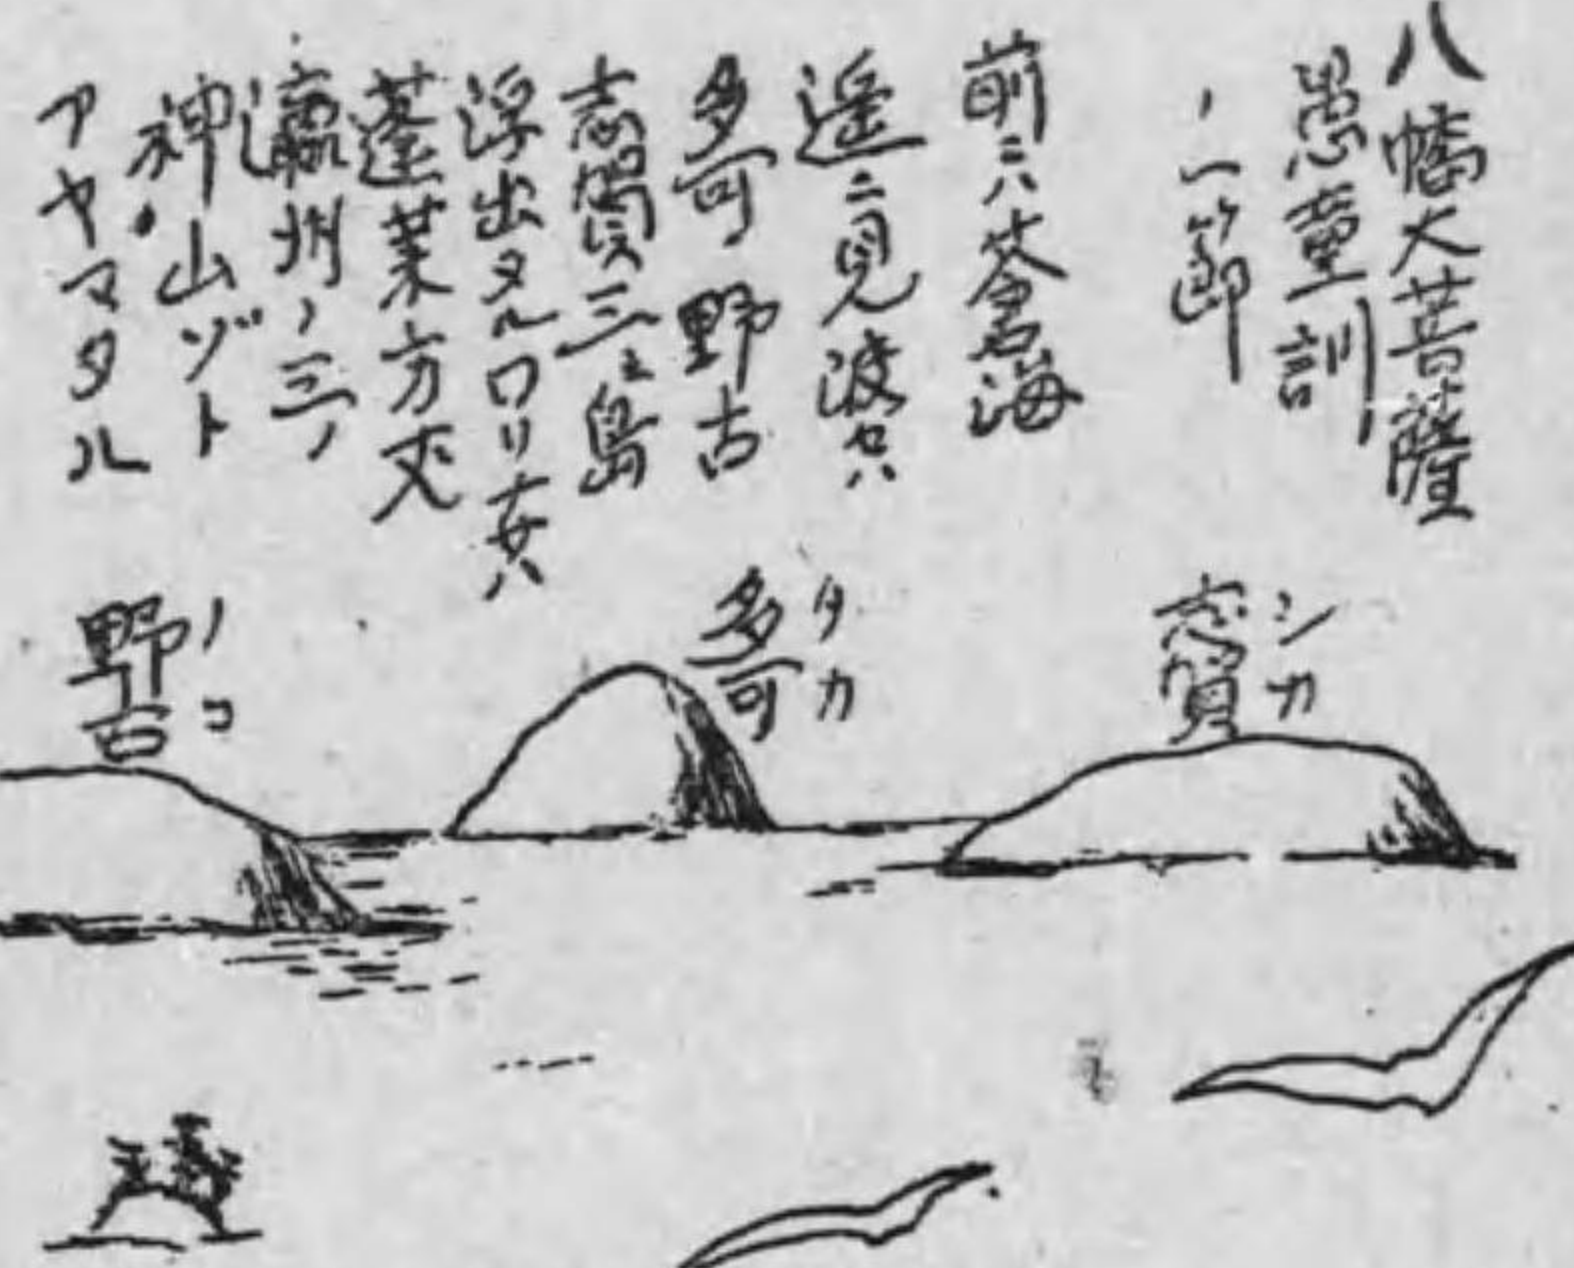 八幡大菩薩
愚童訓
ノ一節
前ニハ蒼海
遥ニ見渡セハ
多可野古
志賀三ノ島
浮出タル
蓬莱方丈
瀛州ノ三ノ
神山ゾト
アヤマタル
志賀
シカ
多可
タカ
野古
ノコ